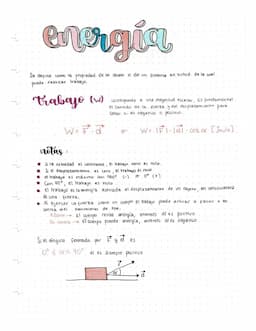 energía
Se define como la propiedad de un objeto o de un sistema en virtud de la cual
puede realizar trabajo.
trabajo (W)
corresponde a una magnitud escalar. Es proporcional
al de la fuerza y del desplazamiento para
o negativo o positivo.
W = F · d o W = |F| · |d| · cos α [Joule]
notas:
Si la velocidad es constante, el trabajo como es nulo.
Si el desplazamiento es cero, el trabajo es nulo
el trabajo es máximo con 180° (-) o 0° (+)
Con 90°, el trabajo es nulo.
El trabajo es la energía asociada al desplazamiento de un objeto, en consecuencia
de una fuerza.
Al ejercer la fuerza sobre un cuerpo el trabajo puede
El cuerpo recibe energía, entonces W es positivo
El cuerpo puede energía, entonces W es negativo.
Si el ángulo formado por F y d es
0° ≤ α < 90° W es siempre positivo
F
α
d